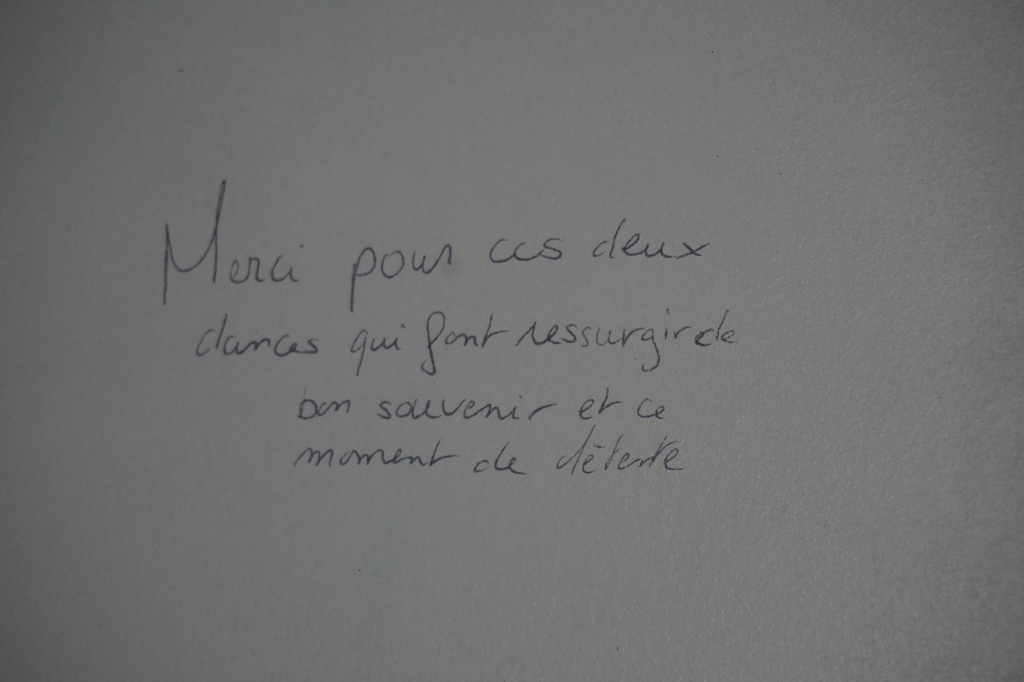 Merci pour ces deux
dances qui font ressurgir de
bon souvenir et ce
moment de détente